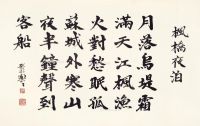 楓橋夜泊
月落烏堤霜
滿天江楓漁
火對愁眠孤
蘇城外寒山
夜半鐘聲到
客船